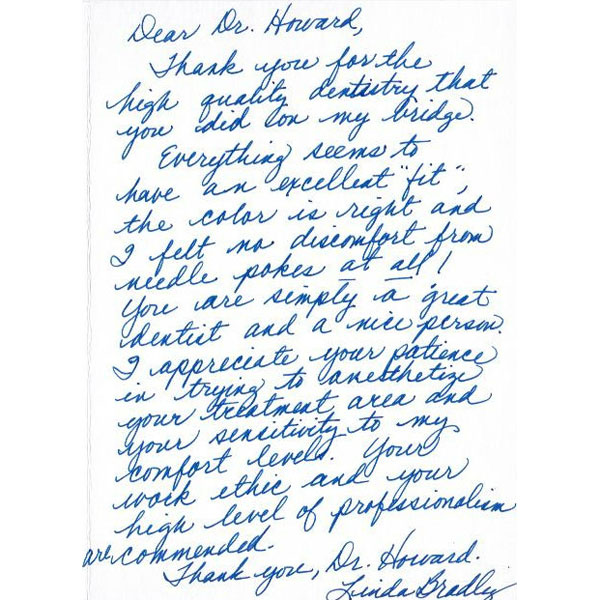 Dear Dr. Howard,
Thank you for the
high quality dentistry that
you did on my bridge.
Everything seems to
have an excellent "fit",
the color is right and
I felt no discomfort from
needle pokes at all!
You are simply a great
dentist and a nice person.
I appreciate your patience
in trying to anesthetize
your treatment area and
your sensitivity to my
comfort levels. Your
work ethic and your
high level of professionalism
are commended.
Thank you, Dr. Howard.
Linda Bradley